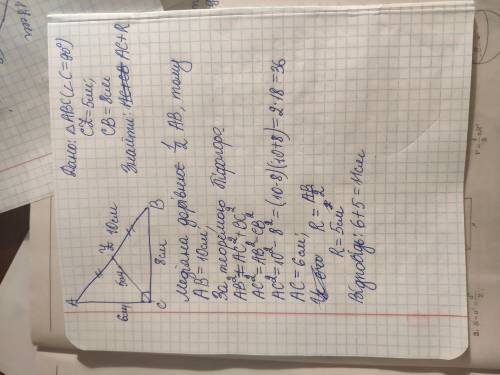 Дано: △ABC (∠C=90°)
CZ=5см;
CB=8см
Знайти: AC+R
A
Z
10см
B
5см
6см
8см
C
Медіана дорівнює 1/2 AB, тому
AB=10см;
За теоремою Піфагора:
AB²=AC²+BC²
AC²=AB²-CB²
AC²=10²-8²=(10-8)(10+8)=2·18=36
AC=6см;
R=AB/2
R=5см
Відповідь: 6+5=11см